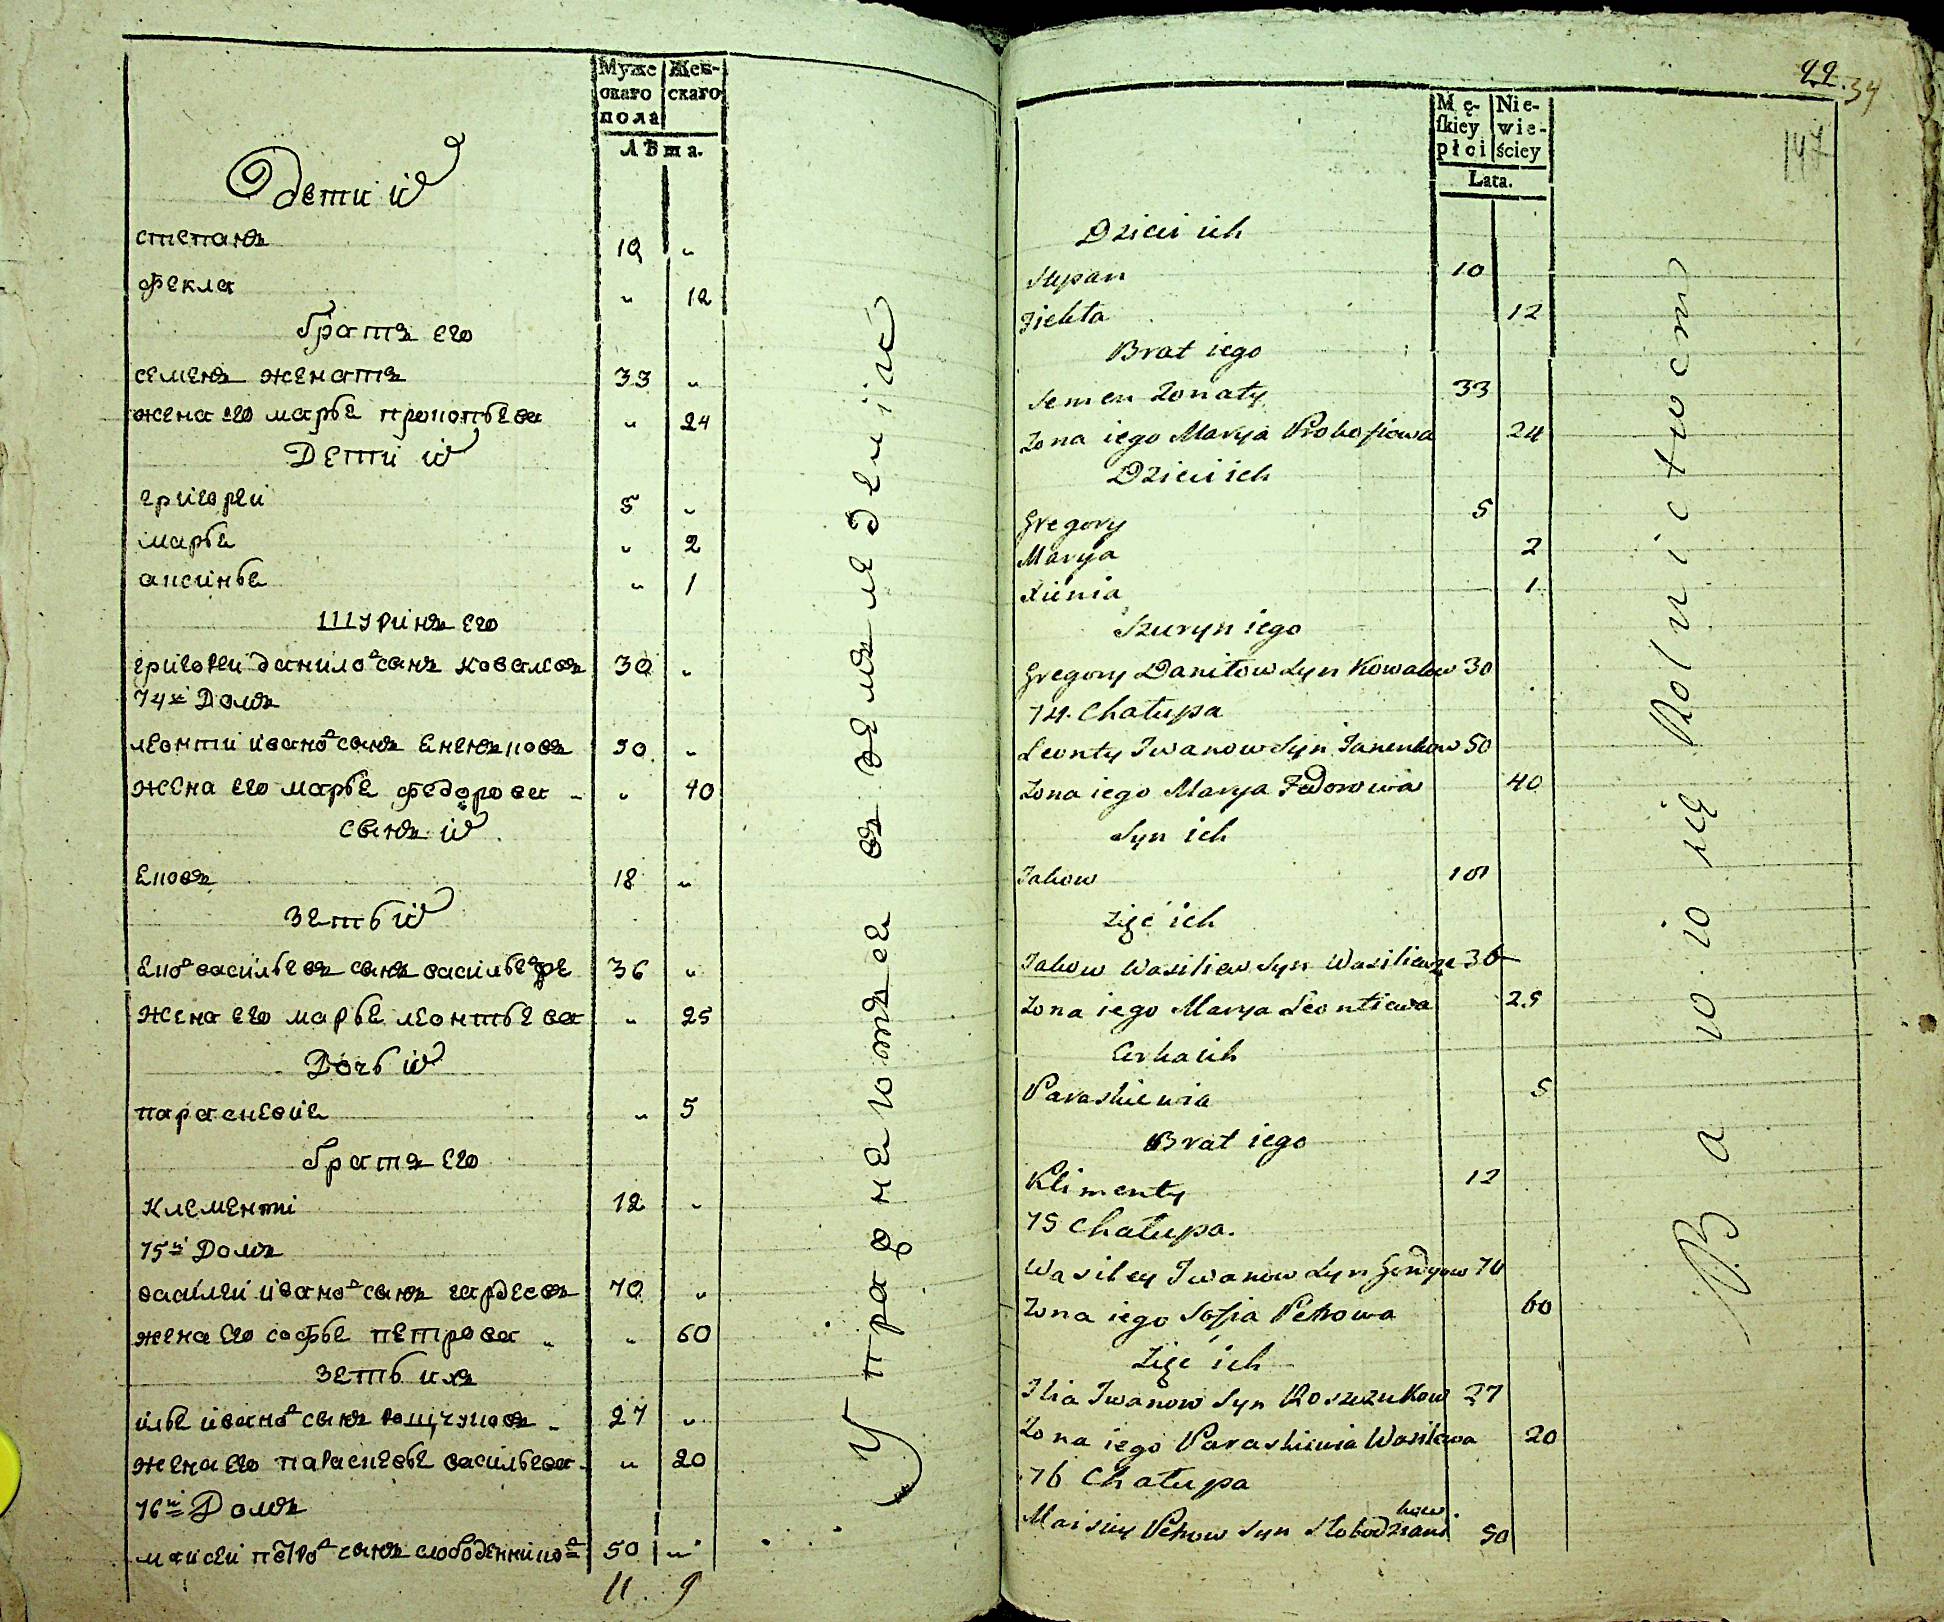 Муже
скаго
пола
Жен-
скаго
Лѣта.
Дети иⷯ
степанъ 10 „
фекла „ 12
братъ его
семенъ женатъ 33 „
жена его марья прокопьева „ 24
Дети иⷯ
григореи 5 „
марья „ 2
аксинья „ 1
Шуринъ его
григореи даниловъ сынъ ковалевъ 30 „
74й Домъ
леонти ивановъ сынъ Енекъновъ 50 „
жена его марья федорова „ 40
сынъ иⷯ
Яковъ 18 „
зеть иⷯ
Яковъ васильевъ сынъ 36 „
жена его марья леонтьева „ 25
Дочь иⷯ
парасковия „ 5
братъ его
Клементи 12 „
75й Домъ
василеи ивановъ сынъ гардеевъ 70 „
жена его софья петрова „ 60
зеть ихъ
илья ивановъ сынъ 27 „
жена его парасковья васильева „ 20
76й Домъ
моисеи петровъ сынъ 50 „
11 . 9
Упражнаютъса въ земледеліи
22. 34
147
Mę-
ſkiey
płci
Nie-
wie-
ściey
Lata.
Dzieci ich
Stypan 10
Fiekła 12
Brat iego
Semen Żonaty 33
Żona iego Marya Prokofiewa 24
Dzieci ich
Gregory 5
Marya 2
Xienia 1
Szuryn iego
Gregory Daniłow Syn Kowalow 30
74. Chałupa
Leonty Iwanow Syn Janenkow 50
Żona iego Marya Fedorowa 40
Syn ich
Jakow 18
Zięć ich
Jakow Wasiliew Syn 36
Żona iego Marya Leontiewa 25
Corka ich
Paraskiewia 5
Brat iego
Klimenty 12
75 Chałupa.
Wasiley Iwanow Syn 70
Żona iego Sofia Petrowa 60
Zięć ich
Ilia Iwanow Syn Roszczukow 27
Żona iego Paraskiewia Wasilewa 20
76 Chałupa
Maisiey Petrow Syn Słobodzianikow 50
Bawio się Rolnictwem